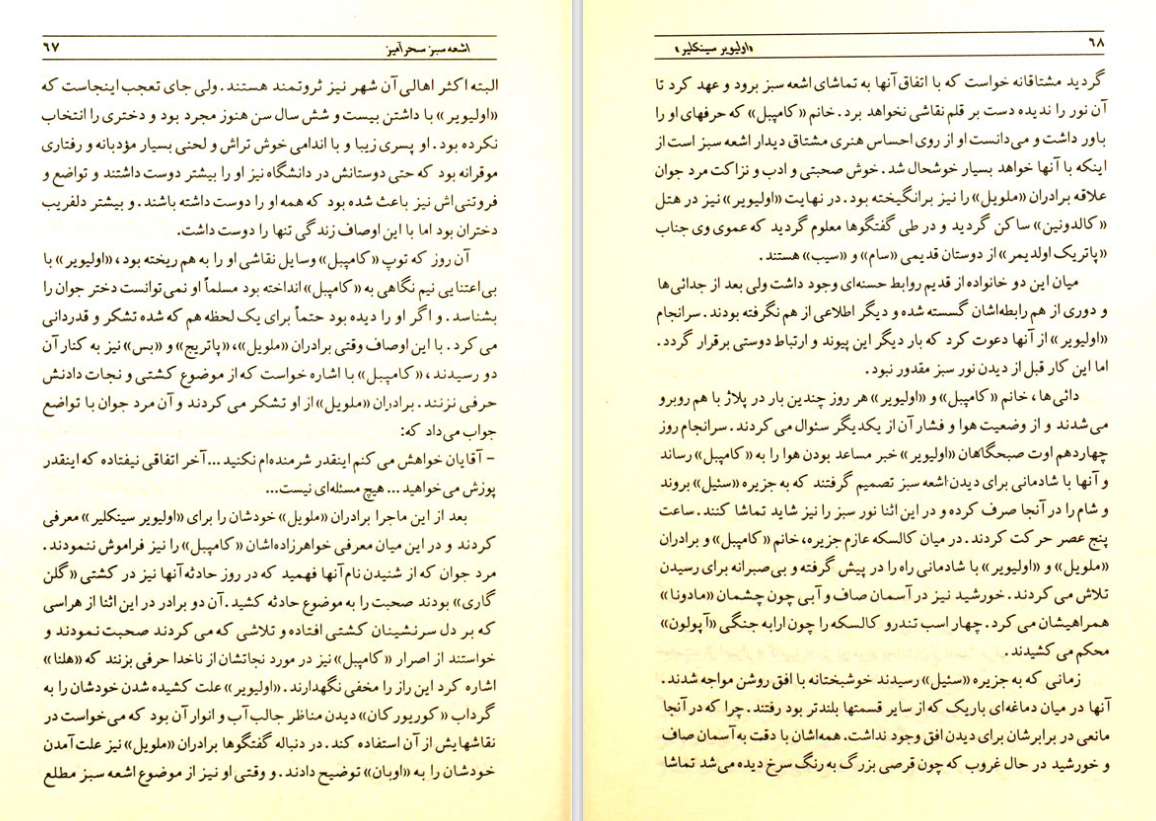 اشعه سبز سحرآمیز ۶۷
البته اکثر اهالی آن شهر نیز ثروتمند هستند. ولی جای تعجب اینجاست که
«اولیویر» با داشتن بیست و شش سال سن هنوز مجرد بود و دختری را انتخاب
نکرده بود. او پسری زیبا و با اندامی خوش تراش و لحنی بسیار مؤدبانه و رفتاری
موقرانه بود که حتی دوستانش در دانشگاه نیز او را بیشتر دوست داشتند و تواضع و
فروتنی‌اش نیز باعث شده بود که همه او را دوست داشته باشند. و بیشتر دلفریب
دختران بود اما با این اوصاف زندگی تنها را دوست داشت.
آن روز که توپ «کامپبل» وسایل نقاشی او را به هم ریخته بود، «اولیویر» با
بی‌اعتنایی نیم نگاهی به «کامپبل» انداخته بود مسلماً او نمی‌توانست دختر جوان را
بشناسد. و اگر او را دیده بود حتماً برای یک لحظه هم که شده تشکر و قدردانی
می کرد. با این اوصاف وقتی برادران «ملویل»، «پاتریج» و «بس» نیز به کنار آن
دو رسیدند، «کامپبل» با اشاره خواست که از موضوع کشتی و نجات دادنش
حرفی نزنند. برادران «ملویل» از او تشکر می کردند و آن مرد جوان با تواضع
جواب می‌داد که:
– آقایان خواهش می کنم اینقدر شرمنده‌ام نکنید ... آخر اتفاقی نیفتاده که اینقدر
پوزش می‌خواهید ... هیچ مسئله‌ای نیست...
بعد از این ماجرا برادران «ملویل» خودشان را برای «اولیویر سینکلیر» معرفی
کردند و در این میان معرفی خواهرزاده‌اشان «کامپبل» را نیز فراموش ننمودند.
مرد جوان که از شنیدن نام آنها فهمید که در روز حادثه آنها نیز در کشتی «گلن
گاری» بودند صحبت را به موضوع حادثه کشید. آن دو برادر در این اثنا از هراسی
که بر دل سرنشینان کشتی افتاده و تلاشی که می کردند صحبت نمودند و
خواستند از اصرار «کامپبل» نیز در مورد نجاتشان از ناخدا حرفی بزنند که «هلنا»
اشاره کرد این راز را مخفی نگهدارند. «اولیویر» علت کشیده شدن خودشان را به
گرداب «کوریورکان» دیدن مناظر جالب آب و انوار آن بود که می‌خواست در
نقاشهایش از آن استفاده کند. در دنباله گفتگوها برادران «ملویل» نیز علت آمدن
خودشان را به «اوبان» توضیح دادند. و وقتی او نیز از موضوع اشعه سبز مطلع
۶۸ «اولیویر سینکلیر»
گردید مشتاقانه خواست که با اتفاق آنها به تماشای اشعه سبز برود و عهد کرد تا
آن نور را ندیده دست بر قلم نقاشی نخواهد برد. خانم «کامپبل» که حرفهای او را
باور داشت و می‌دانست او از روی احساس هنری مشتاق دیدار اشعه سبز است از
اینکه با آنها خواهد بسیار خوشحال شد. خوش صحبتی و ادب و نزاکت مرد جوان
علاقه برادران «ملویل» را نیز برانگیخته بود. در نهایت «اولیویر» نیز در هتل
«کالدونین» ساکن گردید و در طی گفتگوها معلوم گردید که عموی وی جناب
«پاتریک اولدیمر» از دوستان قدیمی «سام» و «سیب» هستند.
میان این دو خانواده از قدیم روابط حسنه‌ای وجود داشت ولی بعد از جدائی‌ها
و دوری از هم رابطه‌اشان گسسته شده و دیگر اطلاعی از هم نگرفته بودند. سرانجام
«اولیویر» از آنها دعوت کرد که بار دیگر این پیوند و ارتباط دوستی برقرار گردد.
اما این کار قبل از دیدن نور سبز مقدور نبود.
دائی‌ها، خانم «کامپبل» و «اولیویر» هر روز چندین بار در پلاژ با هم روبرو
می‌شدند و از وضعیت هوا و فشار آن از یکدیگر سئوال می کردند. سرانجام روز
چهاردهم اوت صبحگاهان «اولیویر» خبر مساعد بودن هوا را به «کامپبل» رساند
و آنها با شادمانی برای دیدن اشعه سبز تصمیم گرفتند که به جزیره «سئیل» بروند
و شام را در آنجا صرف کرده و در این اثنا نور سبز را نیز شاید تماشا کنند. ساعت
پنج عصر حرکت کردند. در میان کالسکه عازم جزیره، خانم «کامپبل» و برادران
«ملویل» و «اولیویر» با شادمانی راه را در پیش گرفته و بی‌صبرانه برای رسیدن
تلاش می کردند. خورشید نیز در آسمان صاف و آبی چون چشمان «مادونا»
همراهیشان می کرد. چهار اسب تندرو کالسکه را چون ارابه جنگی «آپولون»
محکم می کشیدند.
زمانی که به جزیره «سئیل» رسیدند خوشبختانه با افق روشن مواجه شدند.
آنها در میان دماغه‌ای باریک که از سایر قسمتها بلندتر بود رفتند. چرا که در آنجا
مانعی در برابرشان برای دیدن افق وجود نداشت. همه‌اشان با دقت به آسمان صاف
و خورشید در حال غروب که چون قرصی بزرگ به رنگ سرخ دیده می‌شد تماشا